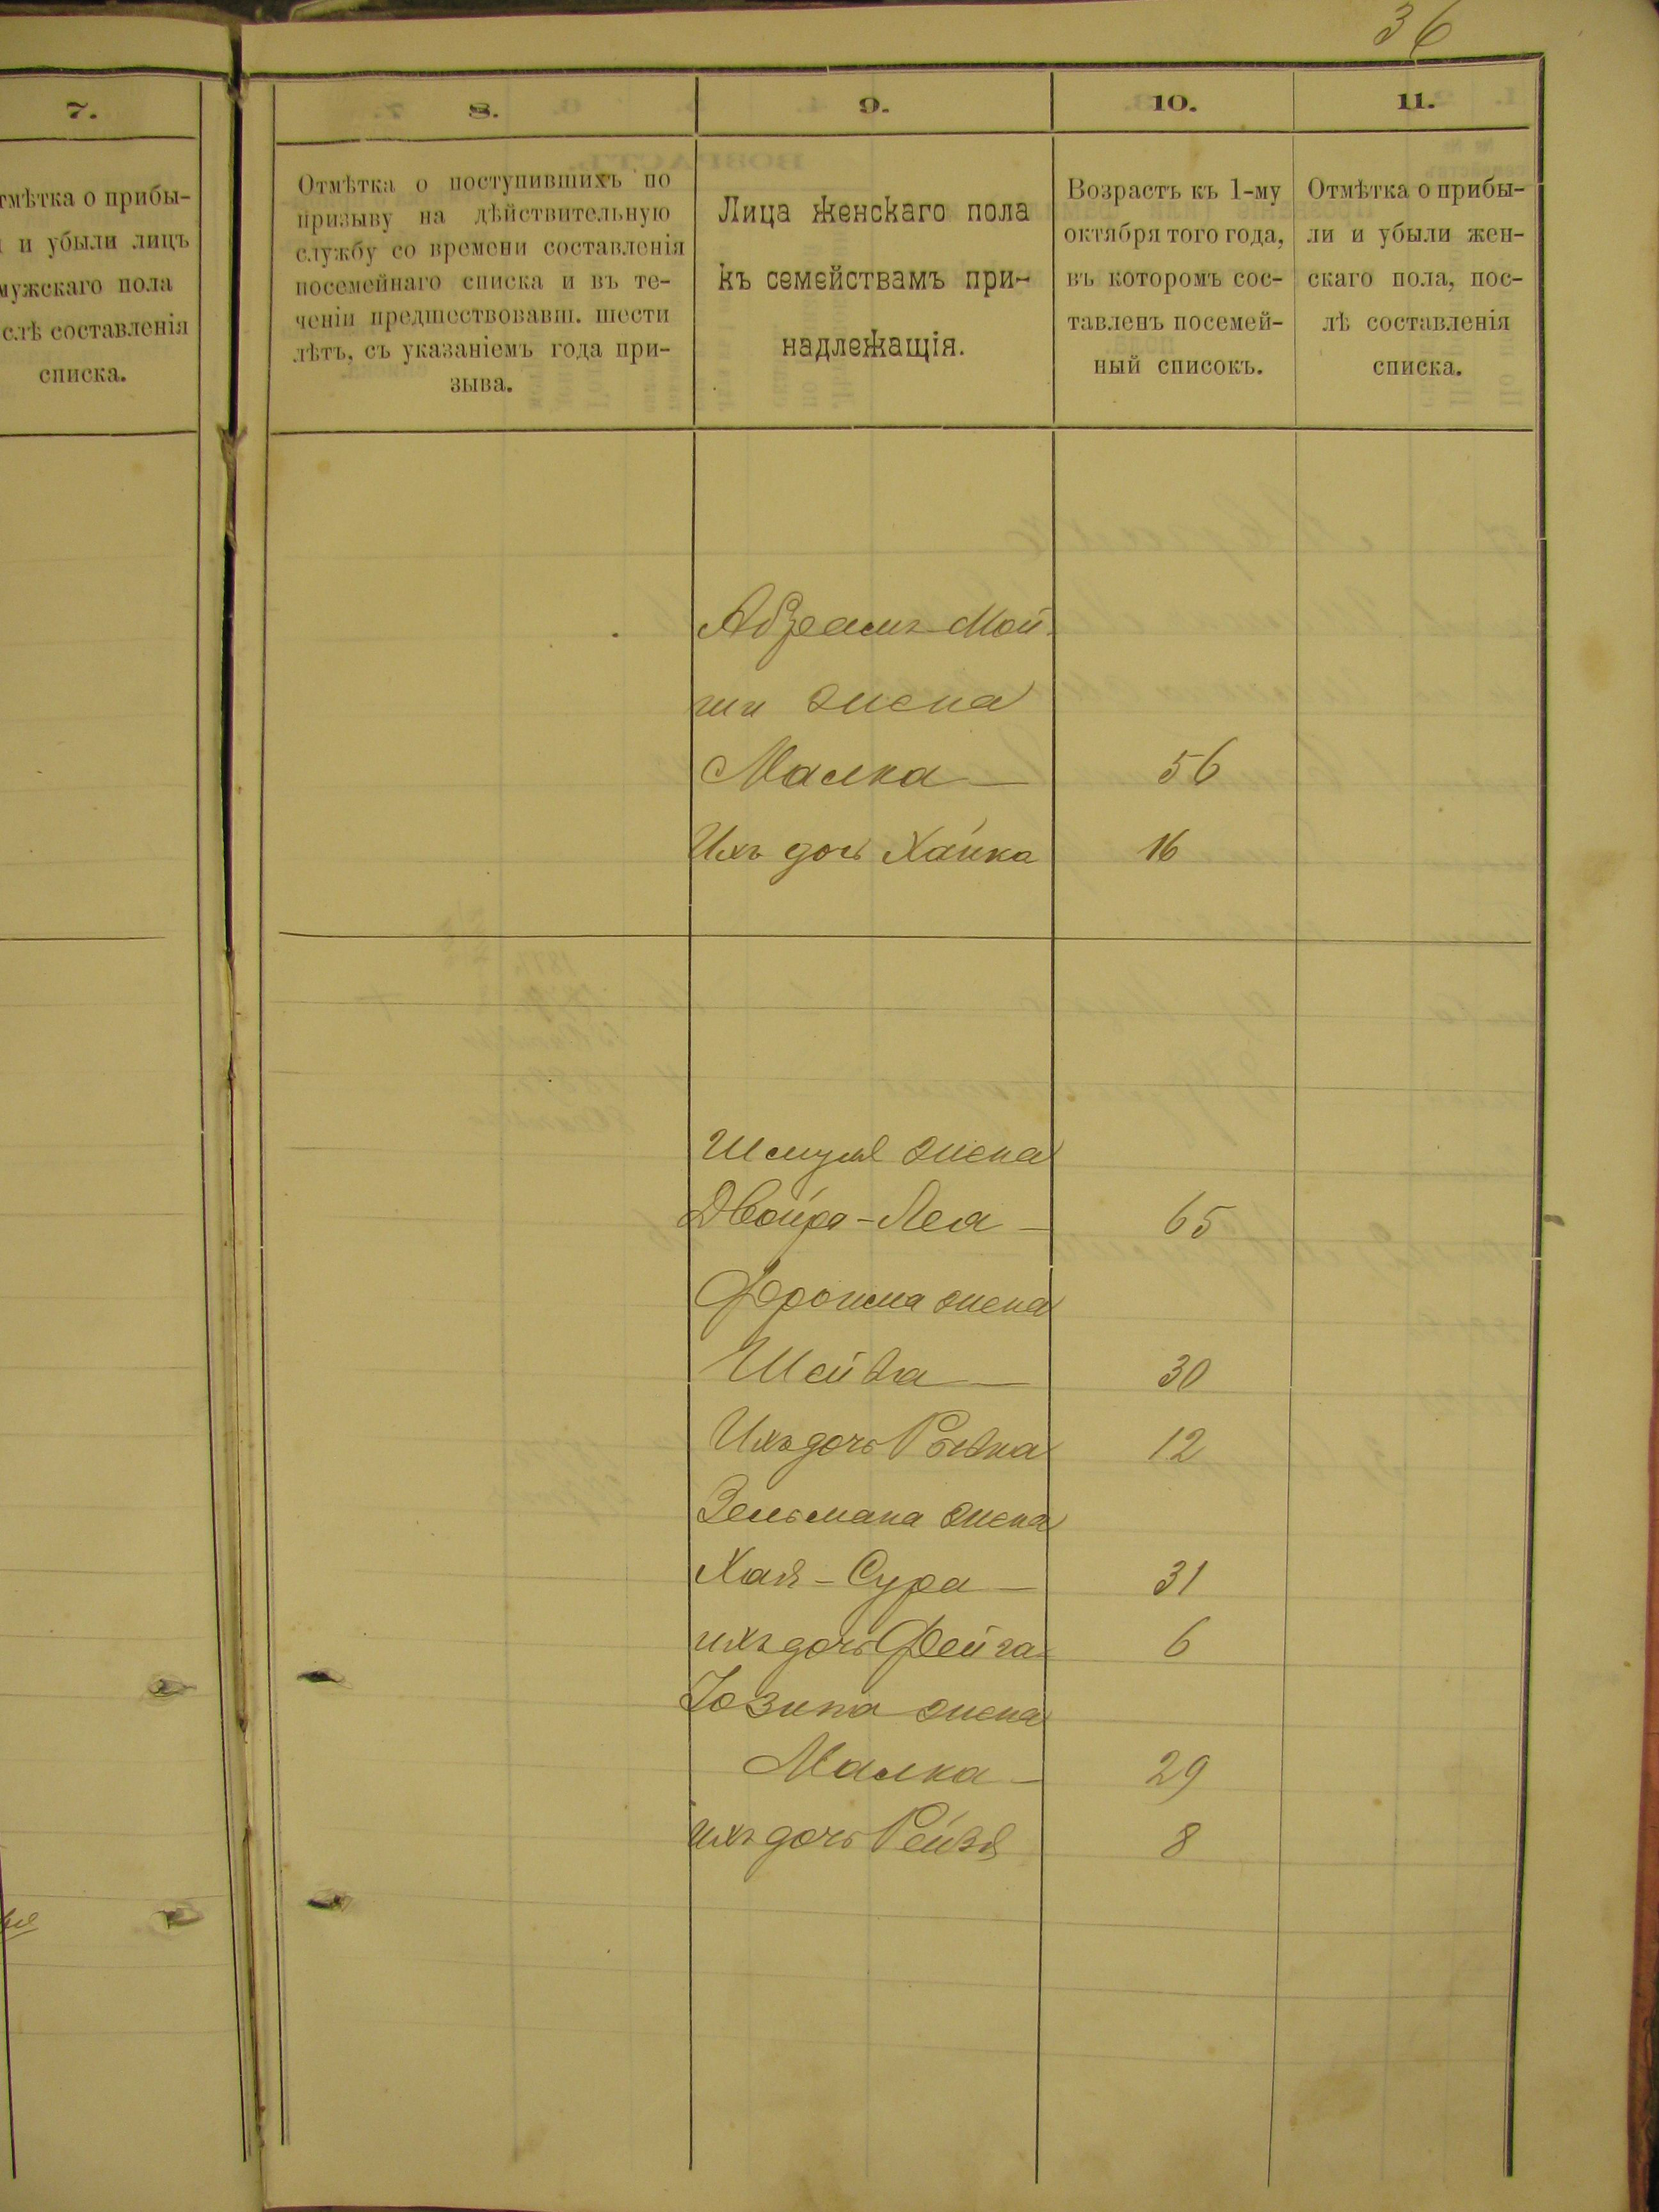 36
7.
тмѣтка о прибы-
и и убыли лицъ
мужскаго пола
слѣ составленія
списка.
8.
Отмѣтка о поступившихъ по
призыву на дѣйствительную
службу со времени составленія
посемейнаго списка и въ те-
ченіи предшествовавш. шести
лѣтъ, съ указаніемъ года при-
зыва.
9.
Лица женскаго пола
къ семействамъ при-
надлежащія.
10.
Возрастъ къ 1-му
октября того года,
въ которомъ сос-
тавленъ посемей-
ный списокъ.
11.
Отмѣтка о прибы-
ли и убыли жен-
скаго пола, пос-
лѣ составленія
списка.
Абрамъ-Мой-
ши жена
Малка — 56
Ихъ дочь Хайка 16
Шмуля жена
Двойра-Лея — 65
Фроима жена
Шейва — 30
Ихъ дочь Рывка 12
Зельмана жена
Хая-Сура — 31
ихъ дочь Фейга 6
Іозипа жена
Малка — 29
ихъ дочь Рейзя 8